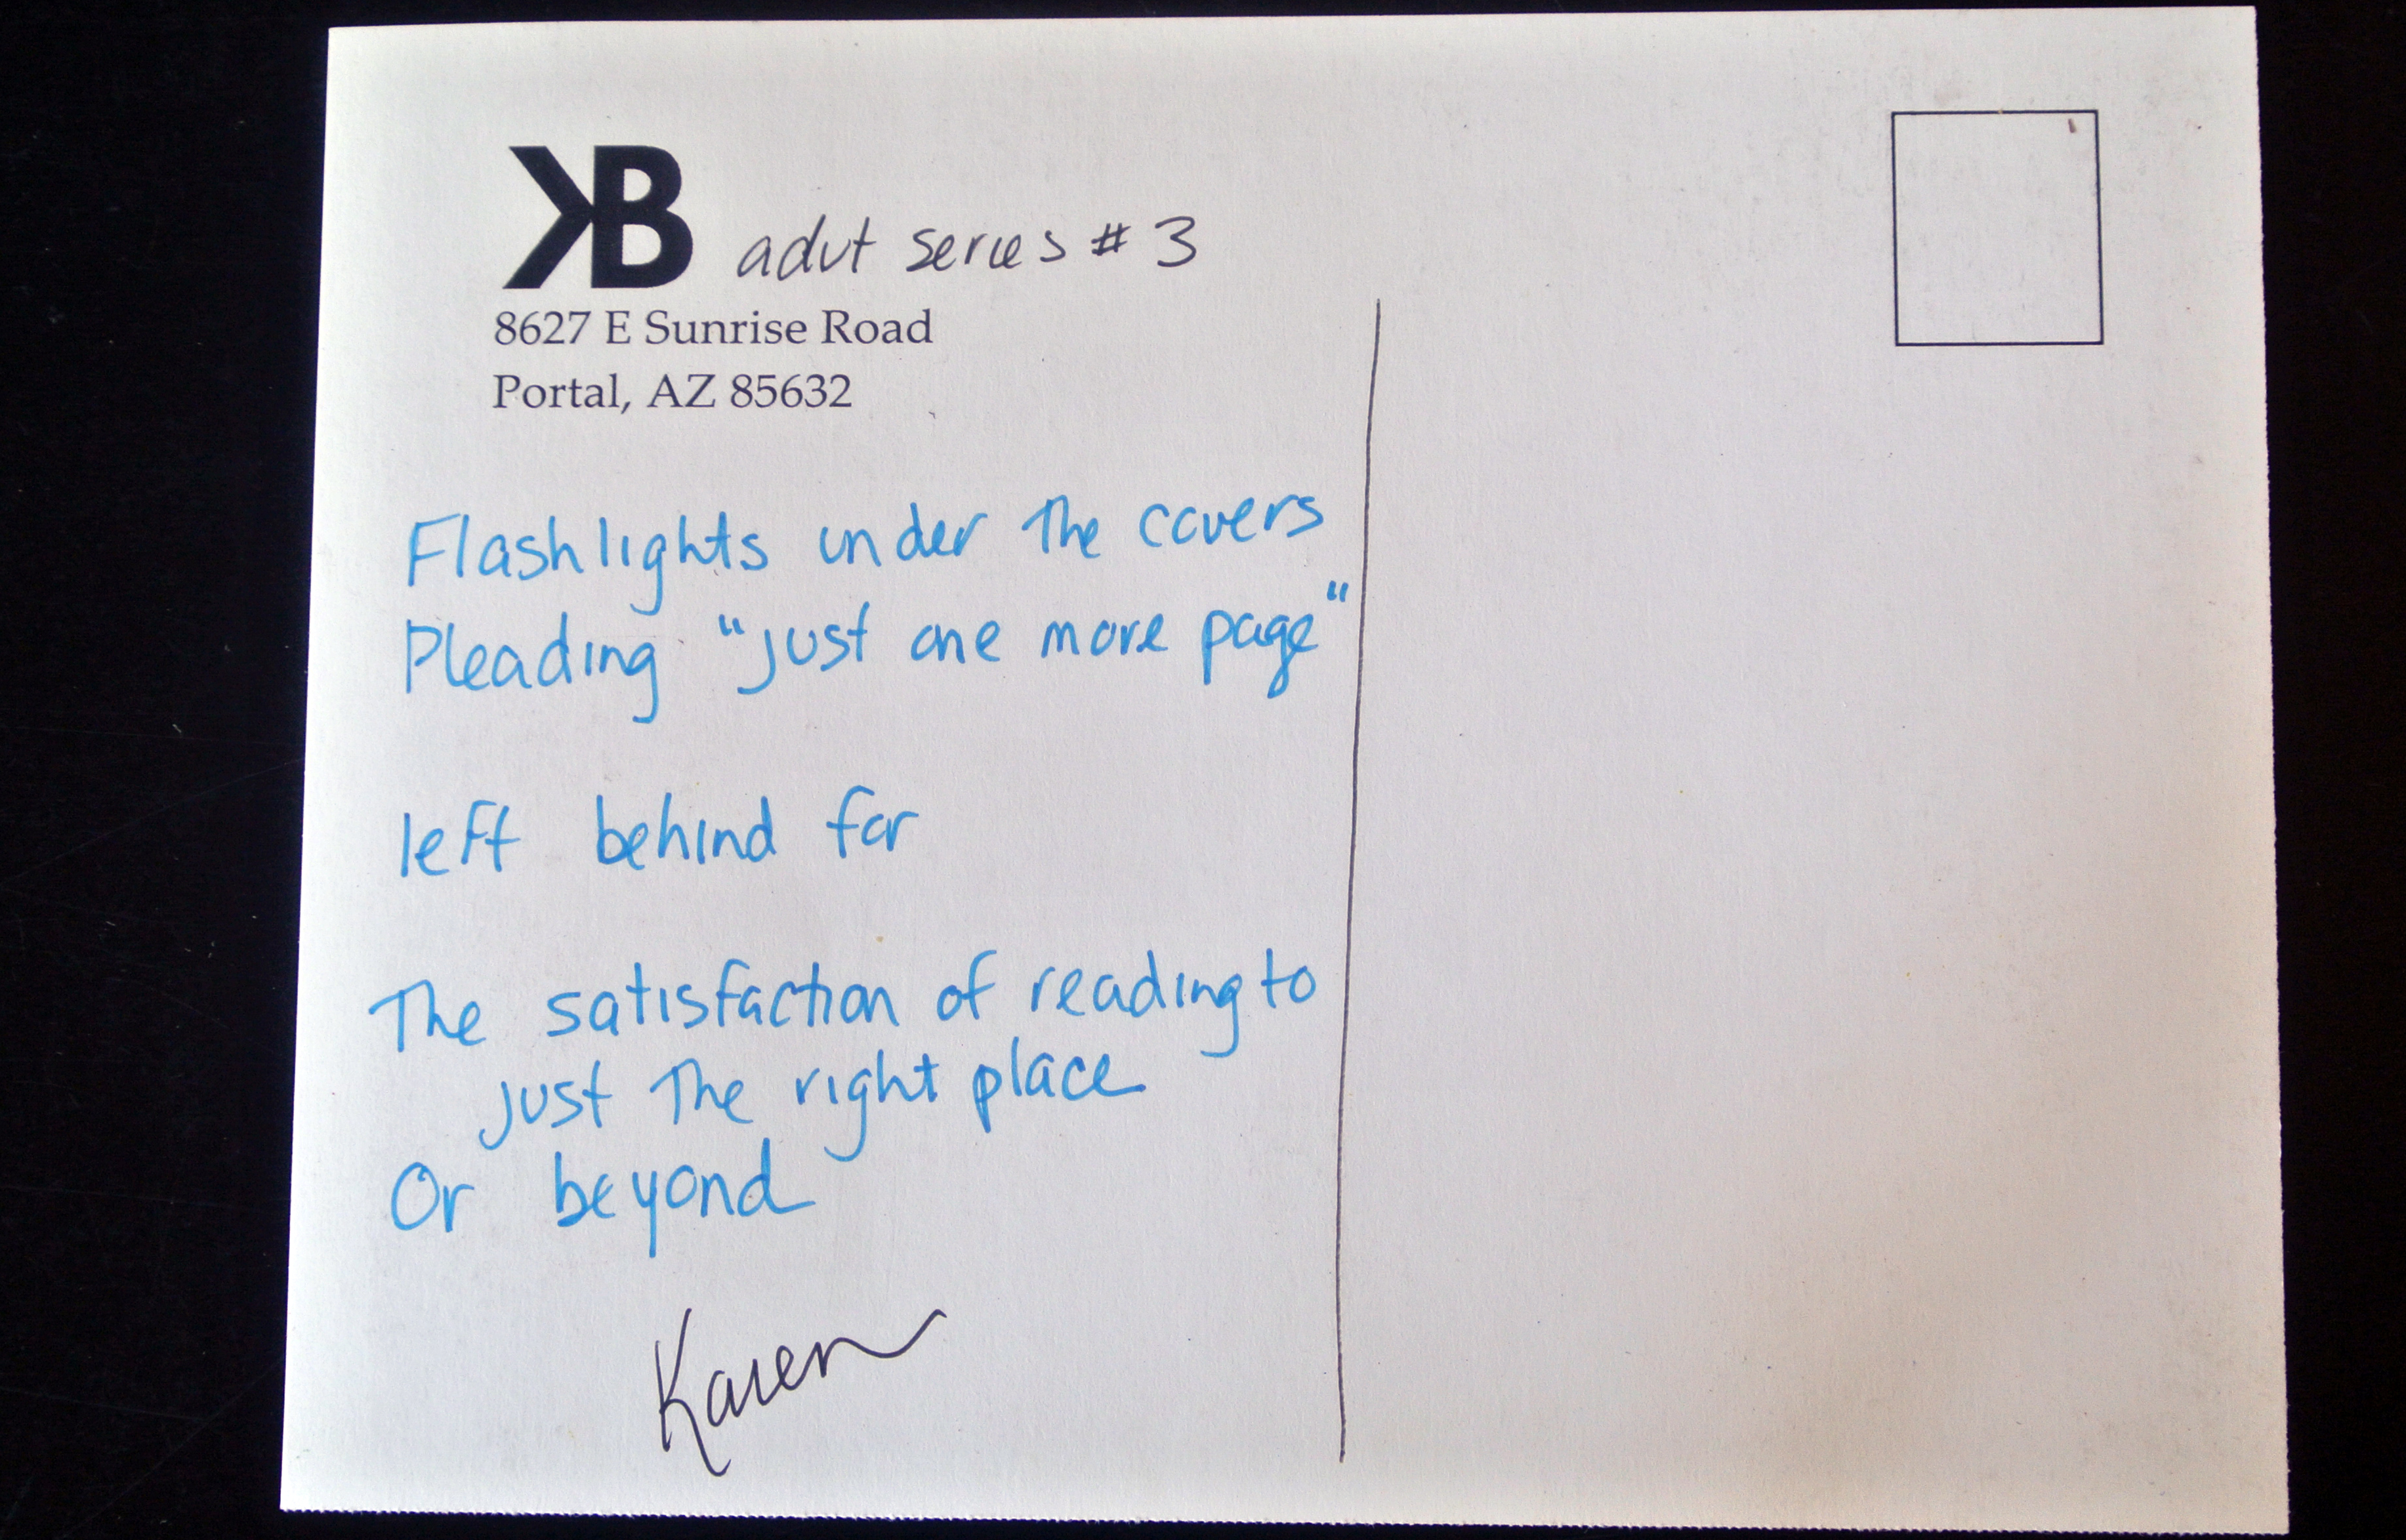 KB advt series # 3
8627 E Sunrise Road
Portal, AZ 85632
Flashlights under the covers
Pleading "just one more page"
left behind for
The satisfaction of reading to
just the right place
Or beyond
Karen